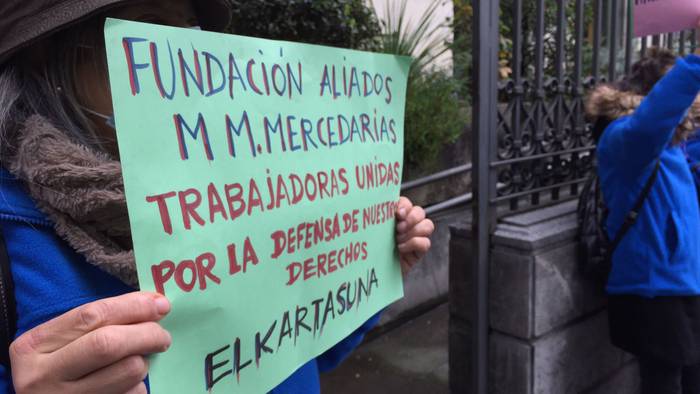 FUNDACIÓN ALIADOS
M M.MERCEDARIAS
TRABAJADORAS UNIDAS
POR LA DEFENSA DE NUESTROS
DERECHOS
ELKARTASUNA